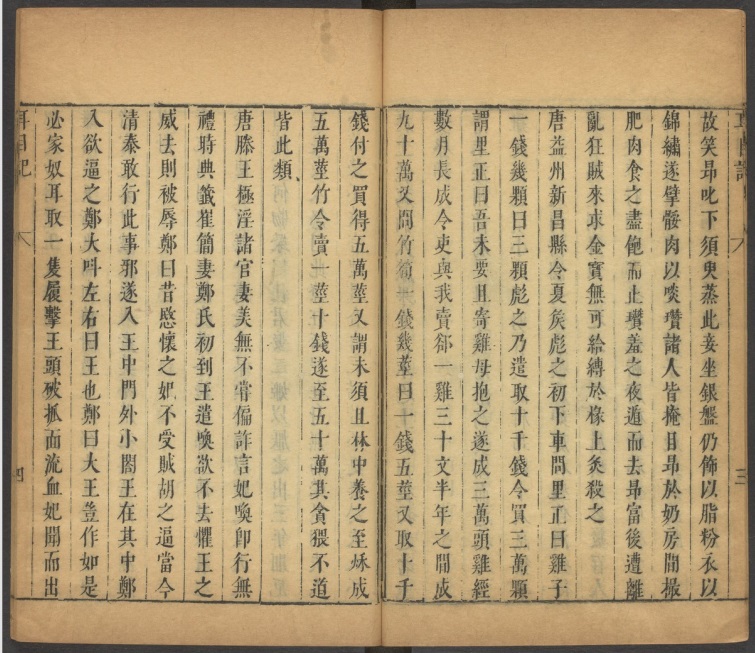 耳目記
三
故笑昻叱下須臾蒸此妾坐銀盤仍飾以脂粉衣以
錦繡遂擘骽肉以啖瓚諸人皆掩目昻於奶房間撮
肥肉食之盡飽而止瓚羞之夜遁而去昻富後遭離
亂狂賊來求金寶無可給縛於椽上炙殺之
唐益州新昌縣令夏矦彪之初下車問里正曰雞子
一錢幾顆曰三顆彪之乃遣取十千錢令買三萬顆
謂里正曰吾未要且寄雞母抱之遂成三萬頭雞經
數月長成令吏與我賣卻一雞三十文半年之間成
九十萬又問竹筍一錢幾莖曰一錢五莖又取十千
錢付之買得五萬莖又謂未須且林中養之至秌成
五萬莖竹令賣一莖十錢遂至五十萬其貪猥不道
皆此類
唐滕王極淫諸官妻美無不嘗徧詐言妃喚卽行無
禮時典籤崔簡妻鄭氏初到王遣喚欲不去懼王之
威去則被辱鄭曰昔愍懷之妃不受賊胡之逼當今
清泰敢行此事邪遂入王中門外小閤王在其中鄭
入欲逼之鄭大呌左右曰王也鄭曰大王豈作如是
必家奴耳取一隻履擊王頭破抓面流血妃聞而出
耳目記
四